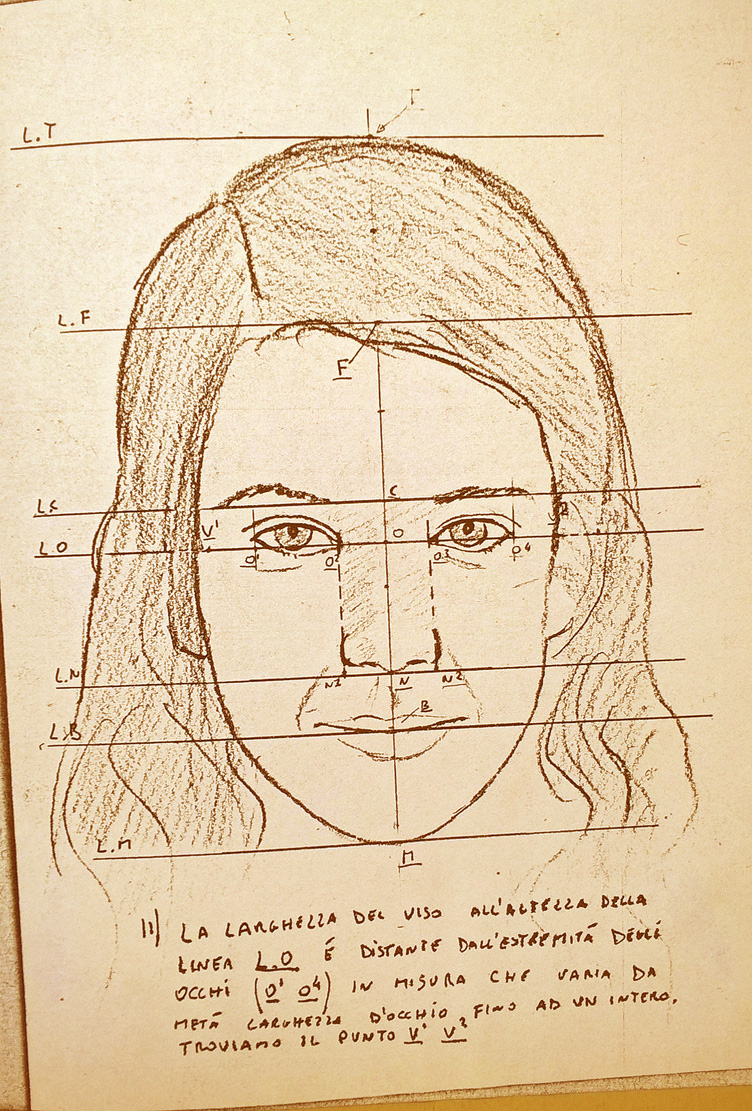 T
L.T
L.F
F
L.C
C
V¹ V²
L.O
O
O¹ O² O³ O⁴
L.N
N1 N N2
B
L.B
L.M
M
11) LA LARGHEZZA DEL VISO ALL'ALTEZZA DELLA
LINEA L.O É DISTANTE DALL'ESTREMITÁ DEGLI
OCCHI (O¹ O⁴) IN MISURA CHE VARIA DA
METÁ LARGHEZZA D'OCCHIO FINO AD UN INTERO.
TROVIAMO IL PUNTO V¹ V²